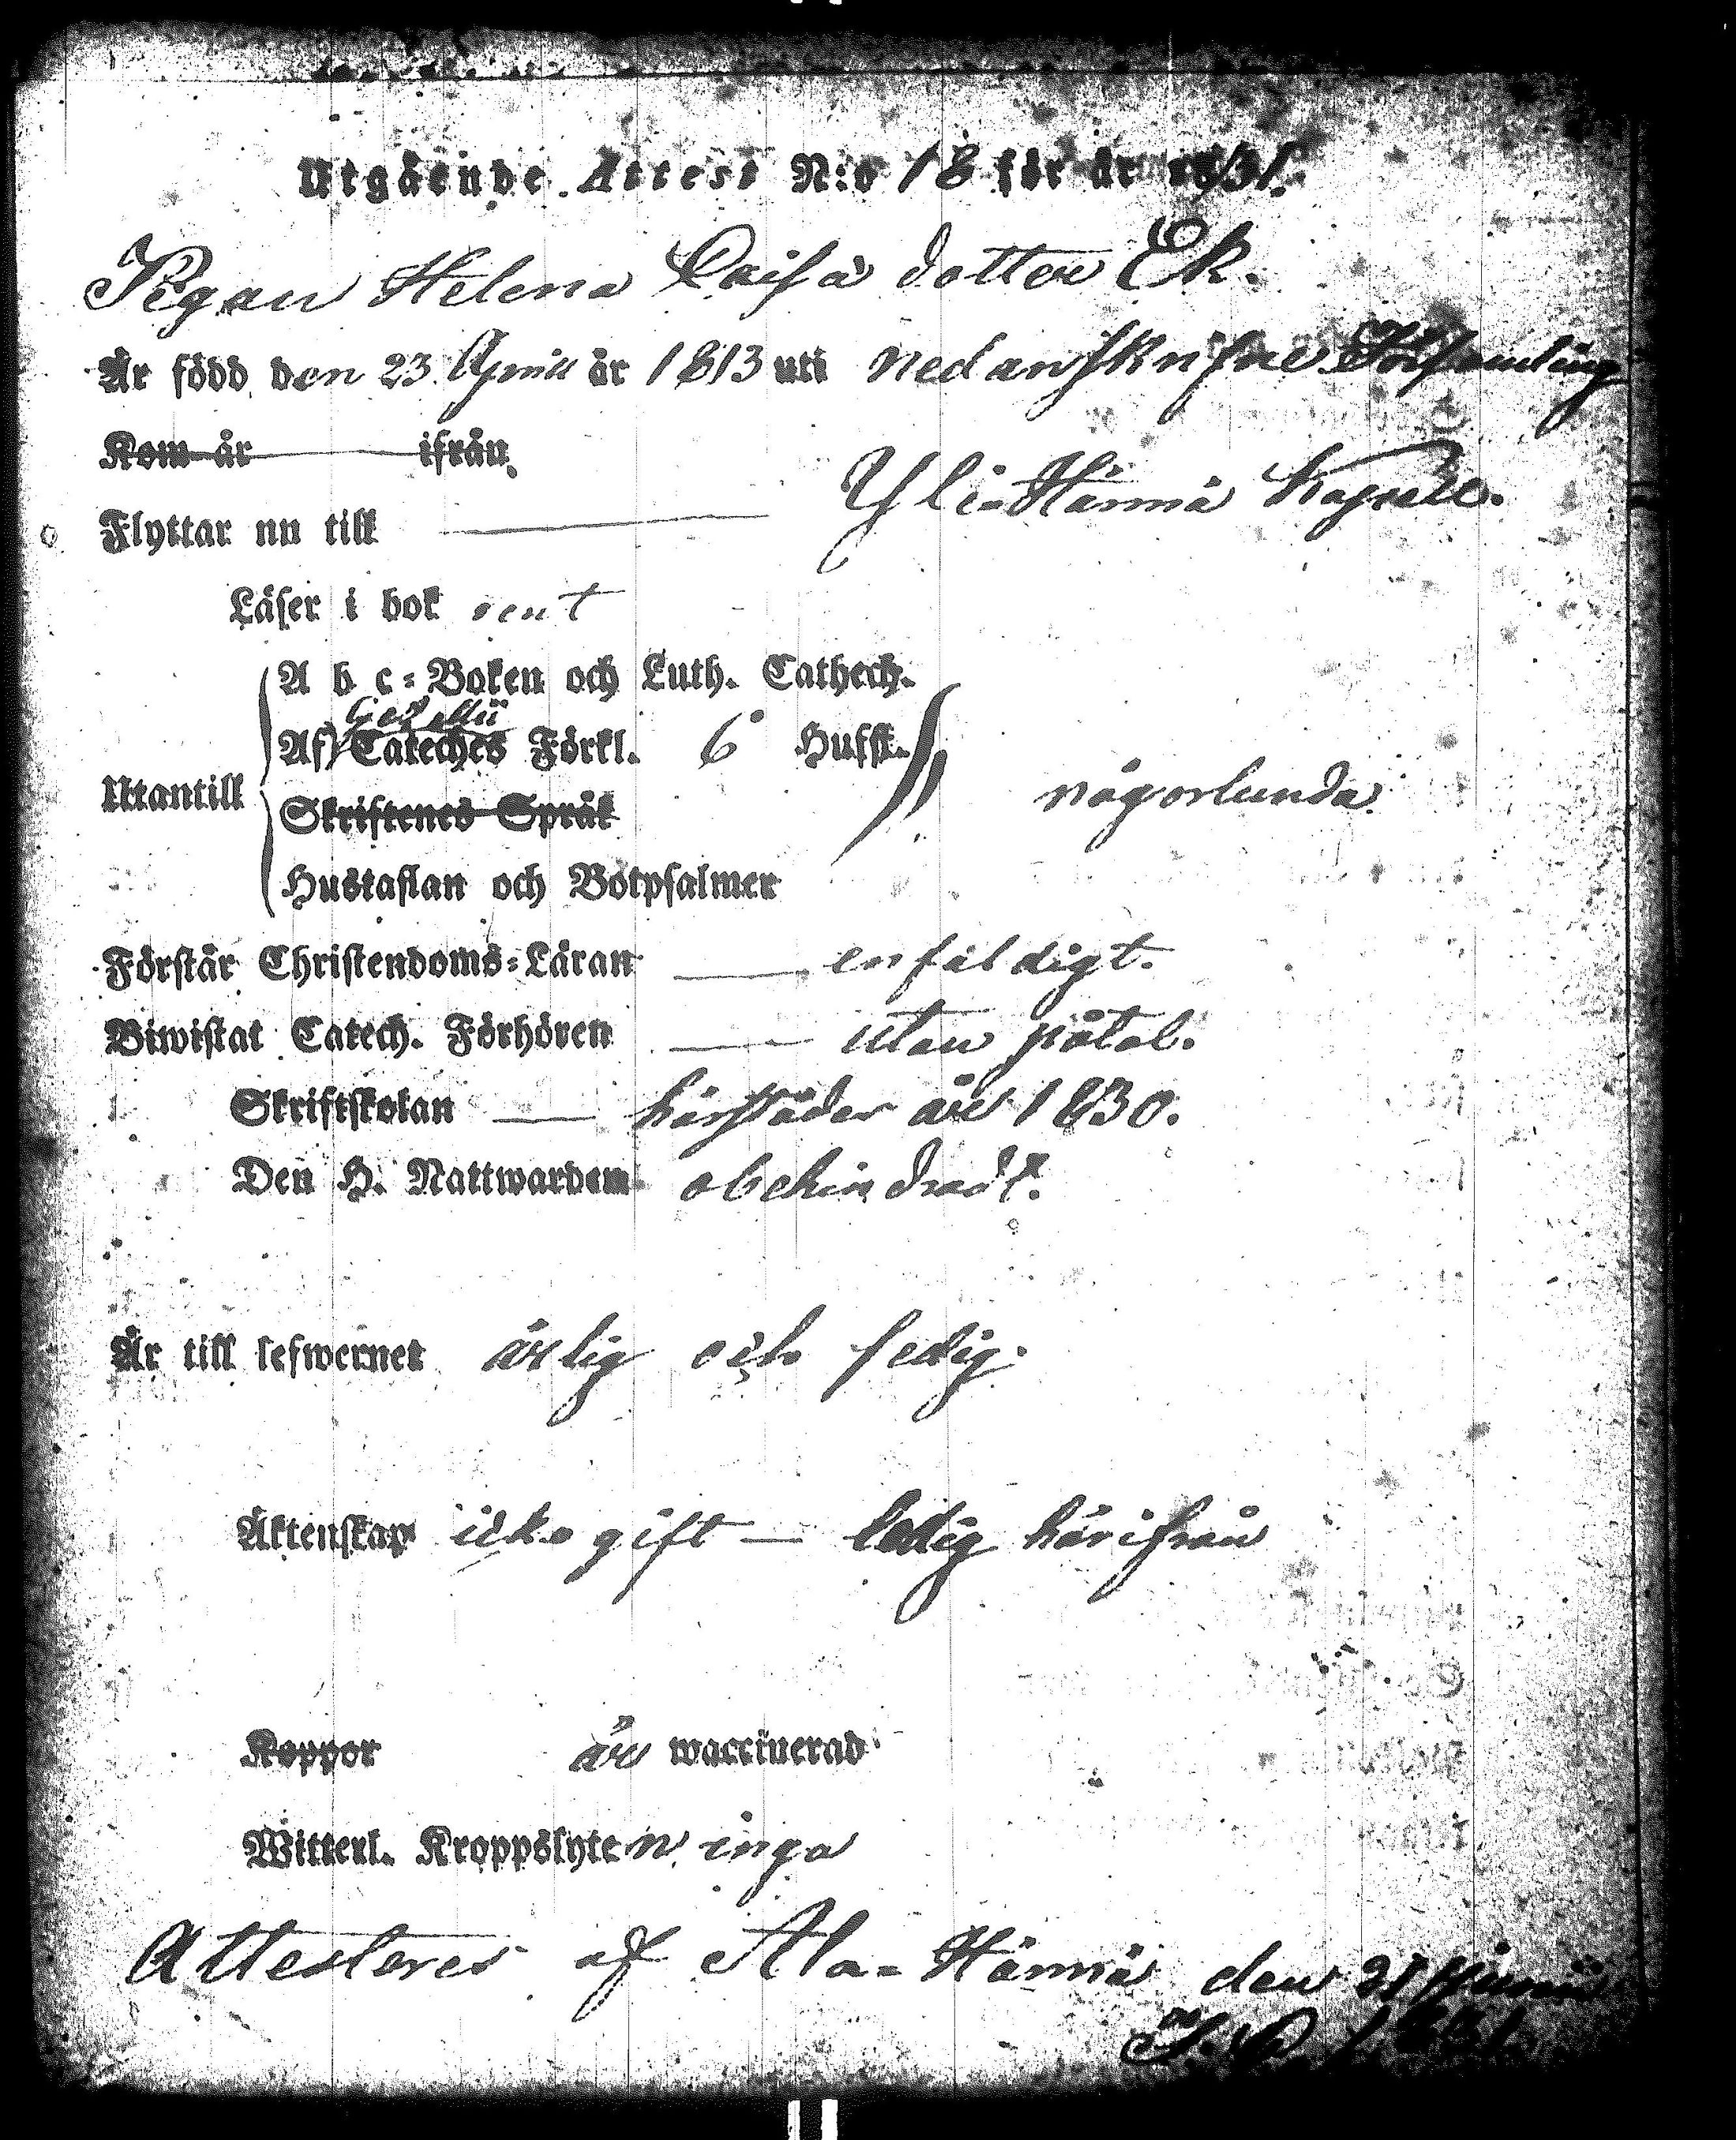 Utgående Attest N:o 18 för år 1831.
Pigan Helena Caisa dotter Ek.
Är född den 23 April år 1813 uti nedanskrifne Församling
Kom år ifrån
Flyttar nu till Yli-Härmä Kapell.
Läser i bok rent
A b c-Boken och Luth. Cathech.
Af Cateches Förkl. 6 Hufst.
Utantill någorlunda
Skriftenes Språk
Hustaflan och Botpsalmer
Förstår Christendoms-Läran enfäldigt.
Biwistat Catech. Förhören utan påtal.
Skriftskolan härstädes år 1830.
Den H. Nattwarden obehindradt.
Är till lefwernet ärlig och sedig.
Äktenskap icke gift — ledig härifrån
Koppor är waccinerad
Witterl. Kroppslyten inga
Attesteres af Ala-Härmä den 21 Junii